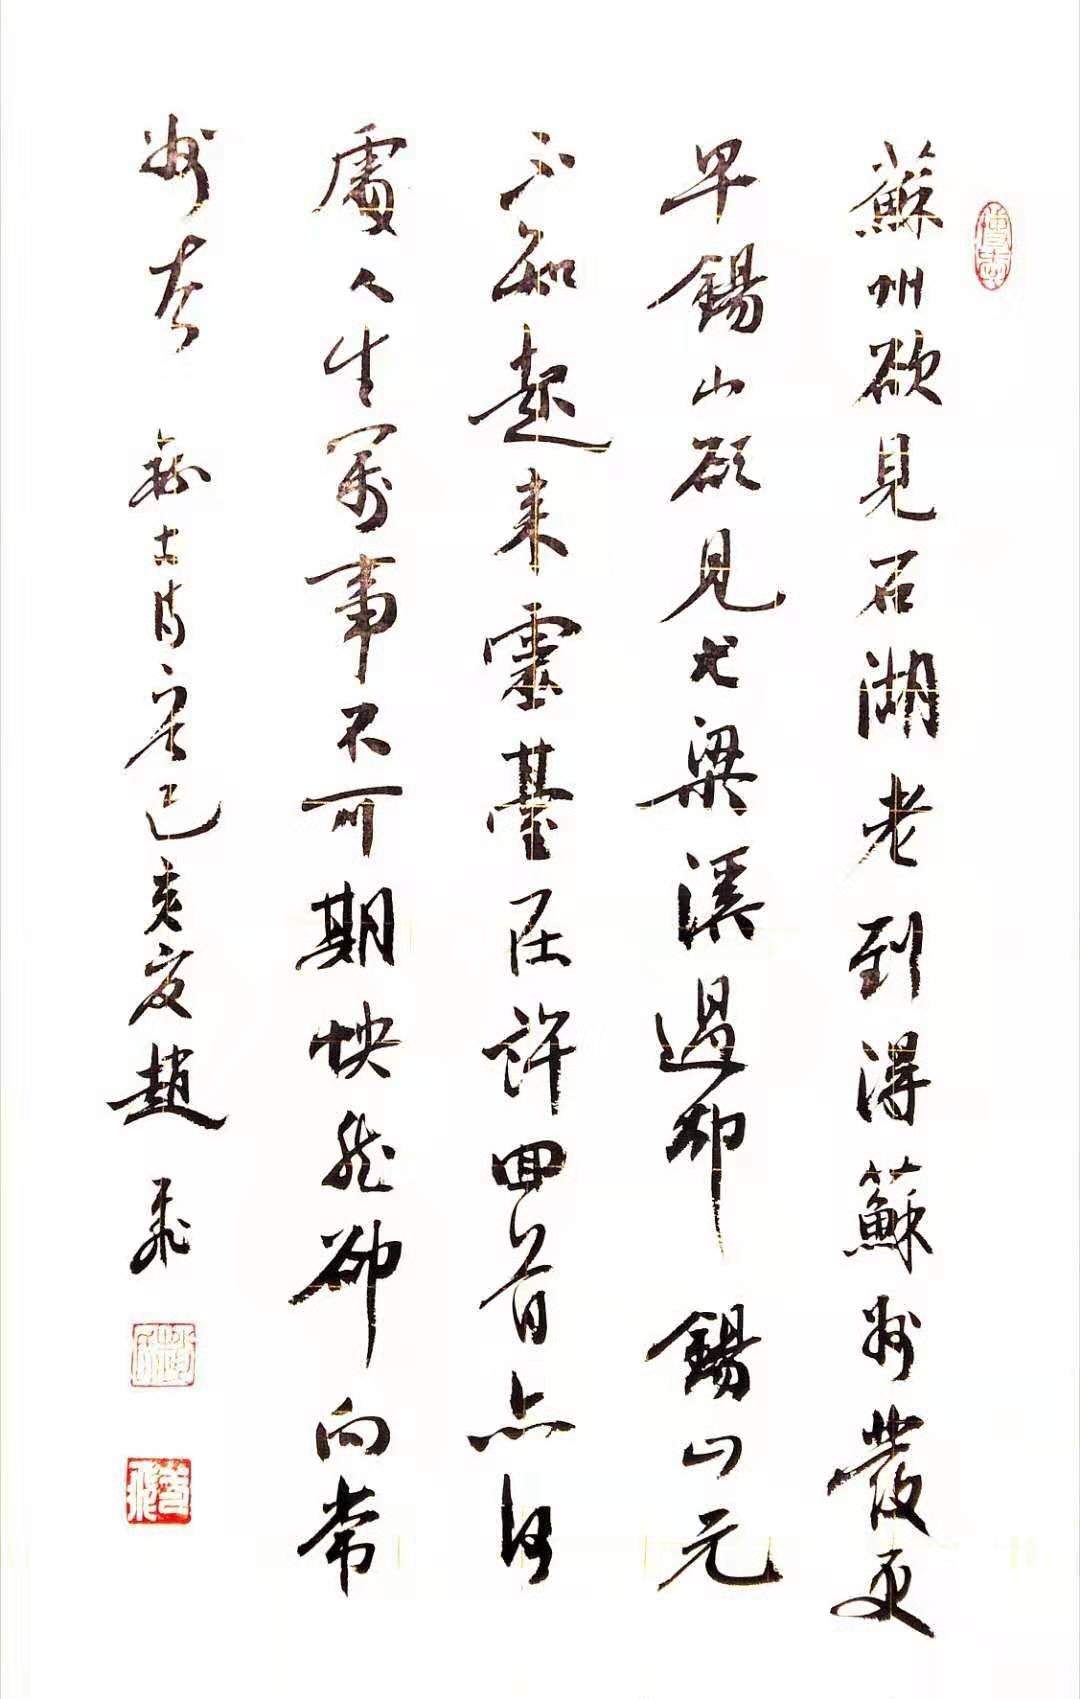 蘇州欲見石湖老到得蘇州發更
早錫山欲見尤梁溪過却錫山元
不知起來靈臺在許回首点檢
處人生萬事不可期怏然卻向常
州去 詩之一己亥夏趙飛